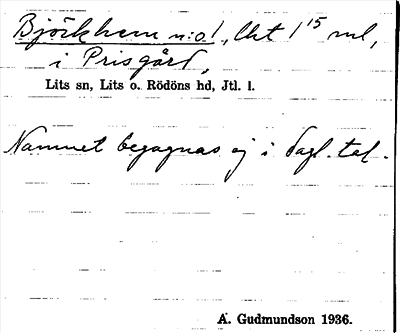 Björkhem n:o 1, lht 1 15 ml,
i Prisgård,
Lits sn, Lits o. Rödöns hd, Jtl. l.
Namnet begagnas ej i dagl. tal.
A. Gudmundson 1936.